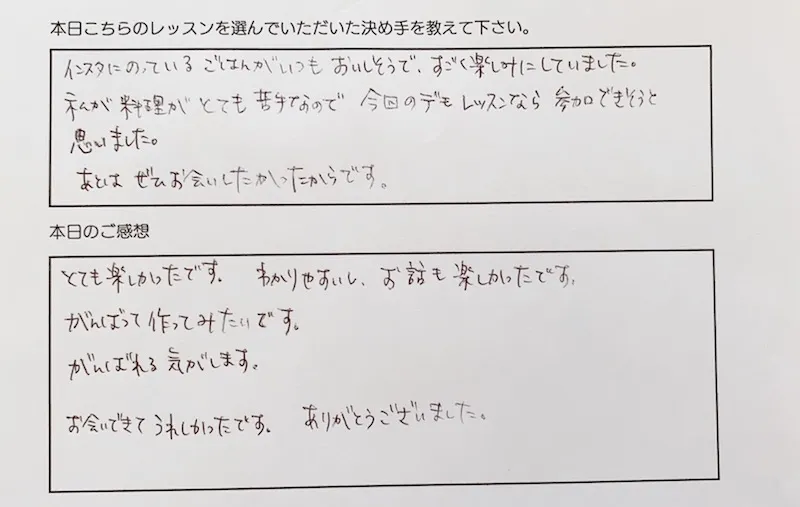 本日こちらのレッスンを選んでいただいた決め手を教えて下さい。
インスタにのっているごはんがいつもおいしそうで、すごく楽しみにしていました。
私が料理がとても苦手なので今回のデモレッスンなら参加できそうと
思いました。
あとはぜひお会いしたかったからです。
本日のご感想
とても楽しかったです。わかりやすいし、お話も楽しかったです。
がんばって作ってみたいです。
がんばれる気がします。
お会いできてうれしかったです。ありがとうございました。